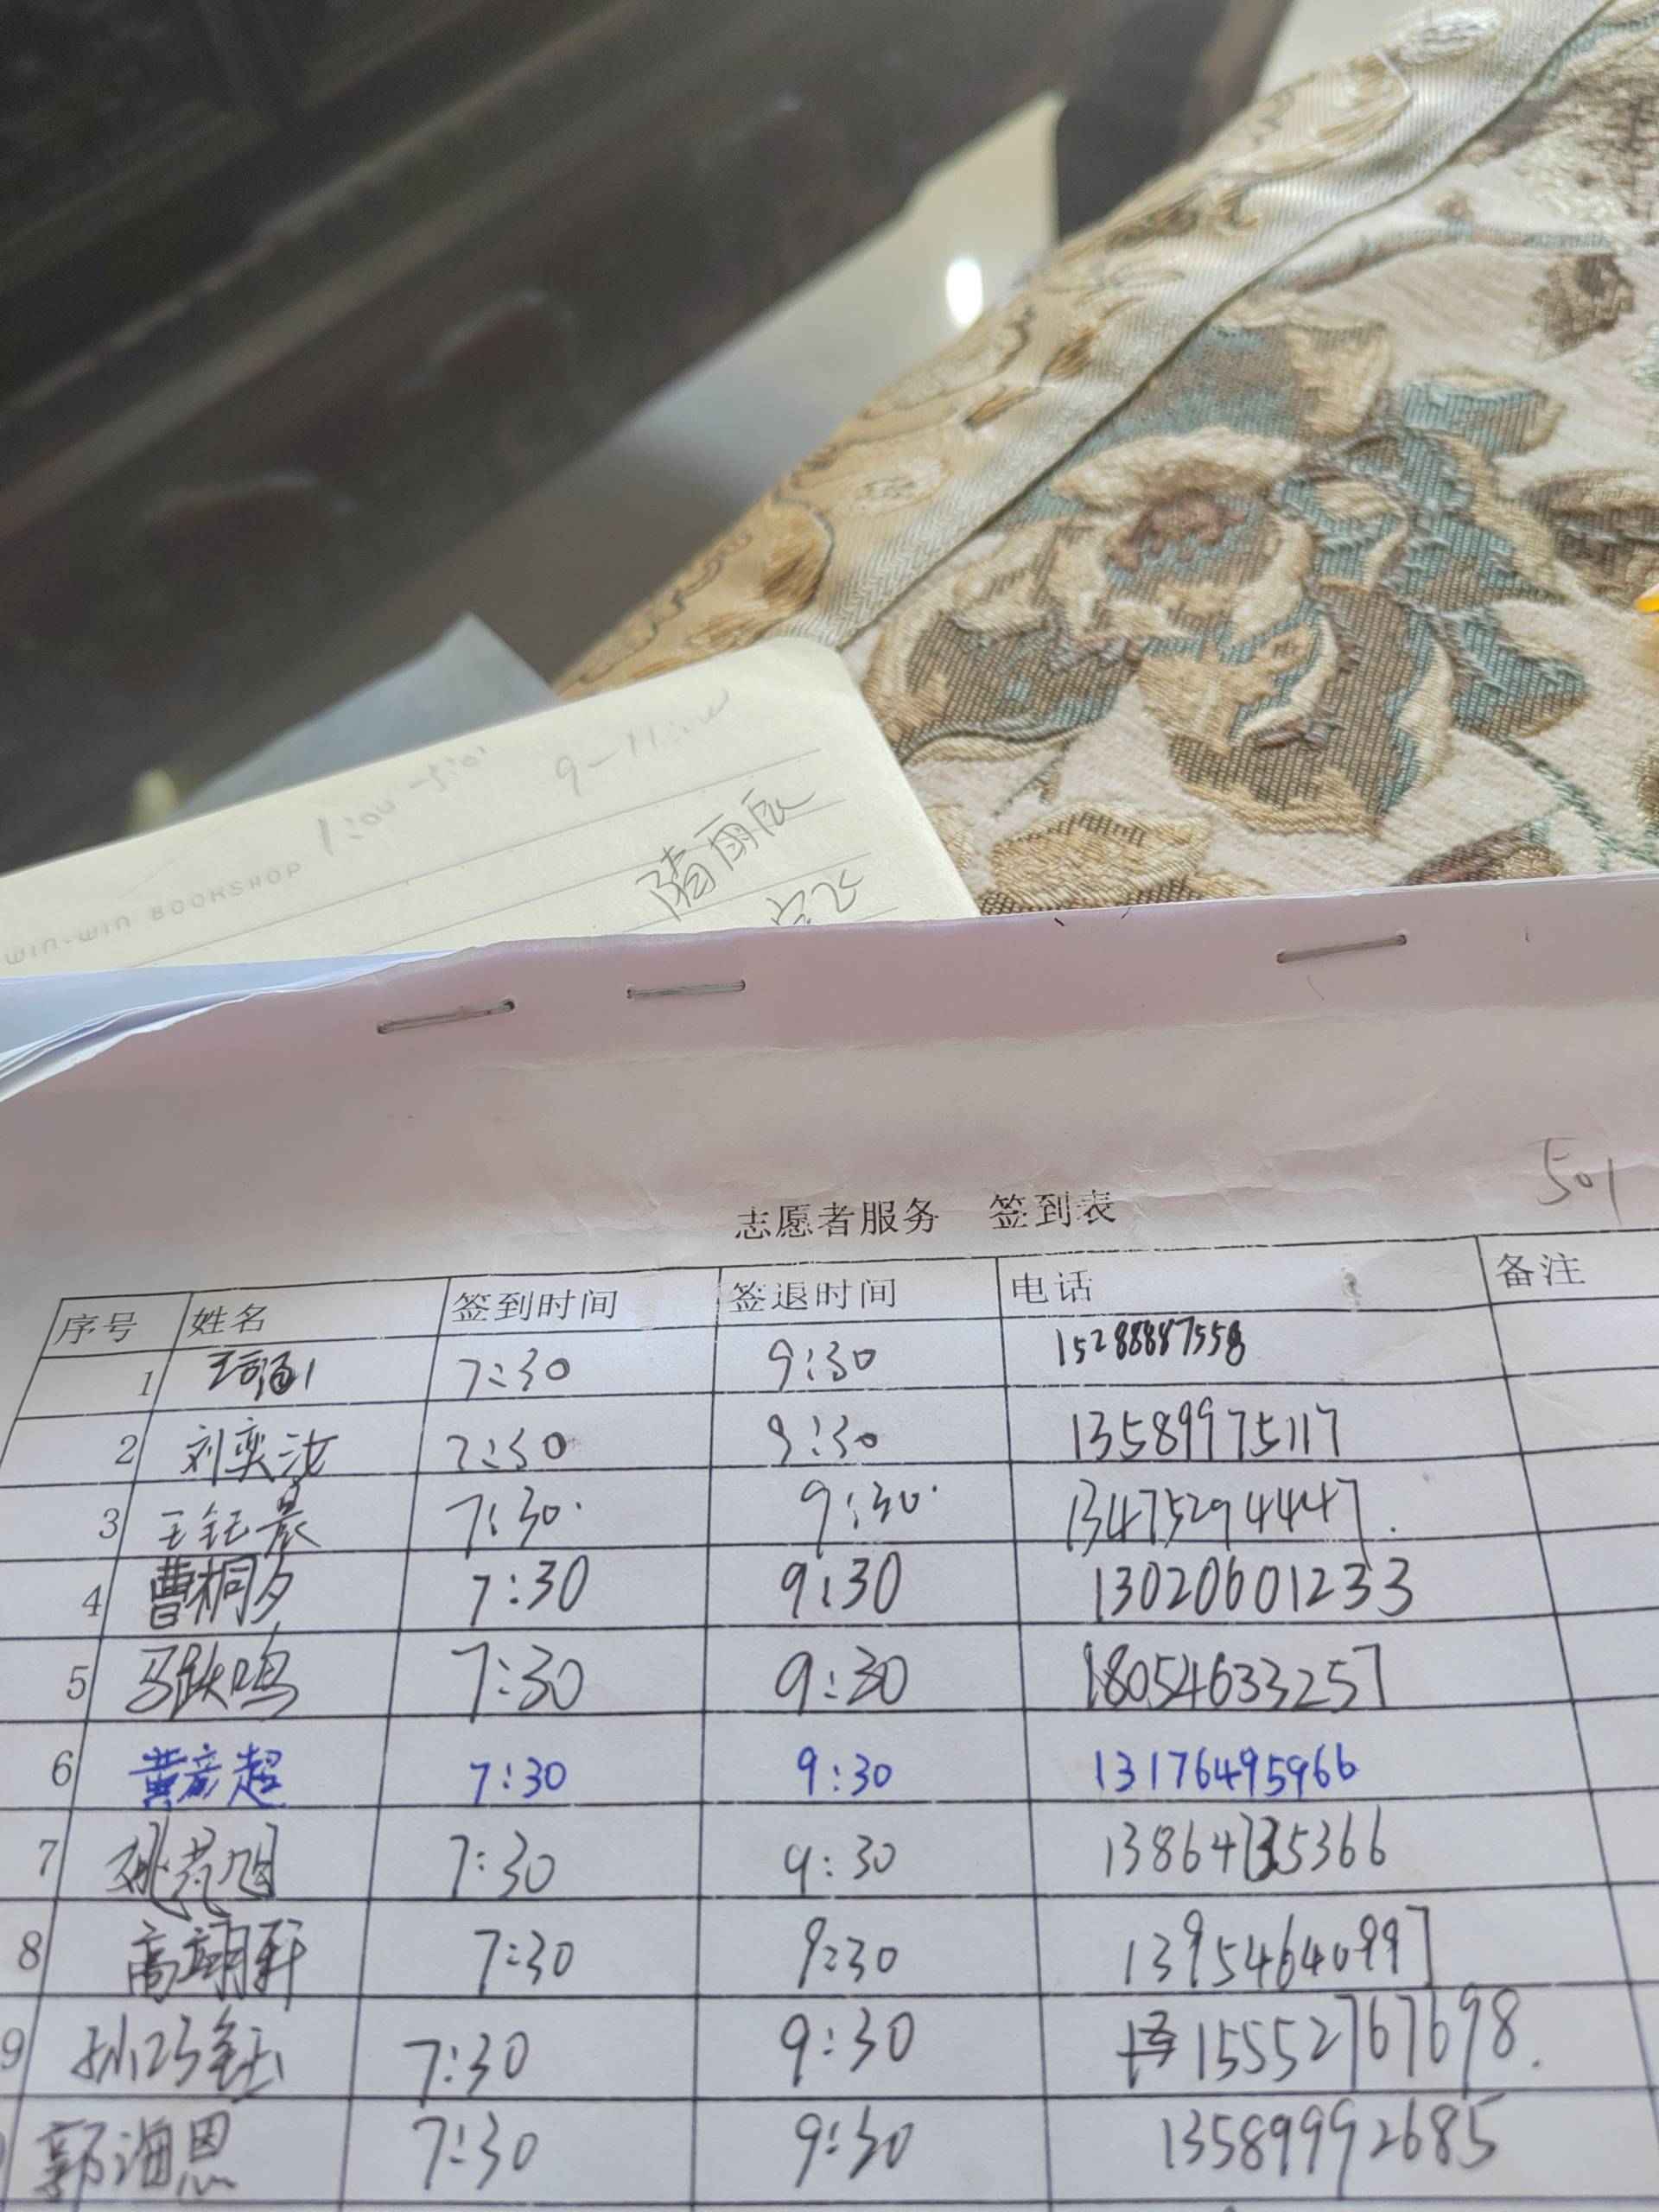 1:00
9-11:
WIN-WIN BOOKSHOP
隋雨辰
501
志愿者服务 签到表
序号 姓名 签到时间 签退时间 电话 备注
1 7:30 9:30 15288887558
2 刘奕汝 7:30 9:30 13589975117
3 王钰晨 7:30 9:30 13475294447
4 曹桐夕 7:30 9:30 13020601233
5 马跃鸣 7:30 9:30 18054633257
6 黄彦超 7:30 9:30 13176495966
7 7:30 9:30 13864735366
8 高翊轩 7:30 9:30 13954640997
9 孙巧钰 7:30 9:30 15552767698
郭海恩 7:30 9:30 13589992685